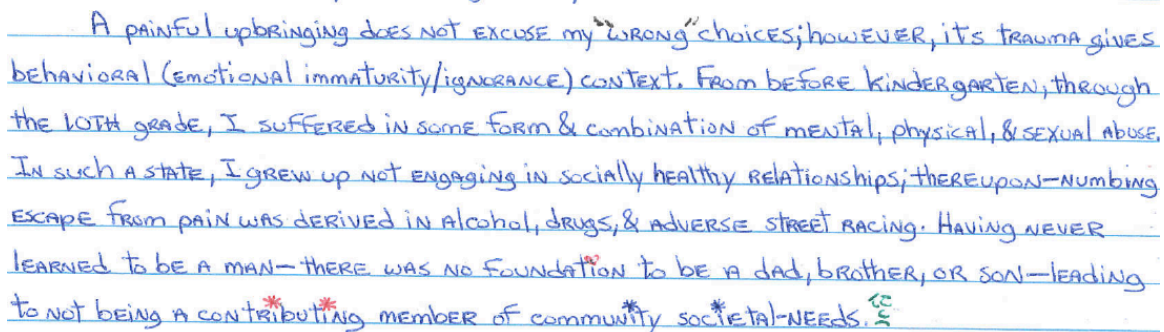 A PAINFUL upbRINGING does NOT EXCUSE my "WRONG" choices; howEVER, it's TRAUMA gives
bEhAVIORAL (EmotIONAL immATURITY/IGNORANCE) CONTEXT. FROM bEFORE KINDERGARTEN, thROugh
thE 10TH gRADE, I SUFFERED IN somE FORM & combINATION of mENTAL, physICAL, & SEXUAL AbUSE.
IN such A STATE, I GREW up NOT ENGAGING IN SOCIALLY hEALThy RELATIONshIps; thEREUPON-NUMbING
ESCAPE FROM pAIN WAS dERIVED IN AlcohoL, dRUgs, & AdVERSE STREET RACING. HAVING NEVER
lEARNED to bE A MAN-thERE WAS NO FOUNDATION to bE A dAd, bROthER, OR SON-lEADING
to NOT bEING A CONTRIbutING mEmbER of commUNITy SOCIETAL-NEEDS.